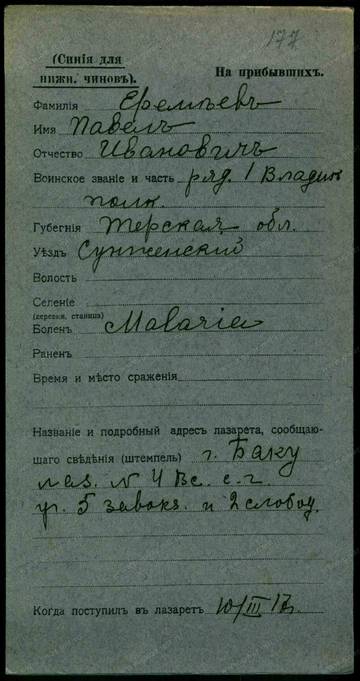 177
(Синія для
нижн. чиновъ).
На прибывшихъ.
Фамилія Еремѣевъ
Имя Павелъ
Отчество Ивановичъ
Воинское званіе и часть ряд. 1 Владик
полк
Губегнія Терская обл.
Уѣздъ Сунженский
Волость
Селеніе
(деревня, станица)
Боленъ Малагіе
Раненъ
Время и мѣсто сраженія
Названіе и подробный адресъ лазарета, сообщаю-
шаго свѣдѣнія (штемпель) г. Баку
лаз. N 4 Вс. с. г.
уг. 5 завокз. и 2 слобод.
Когда поступилъ въ лазаретъ 10/III 17г.